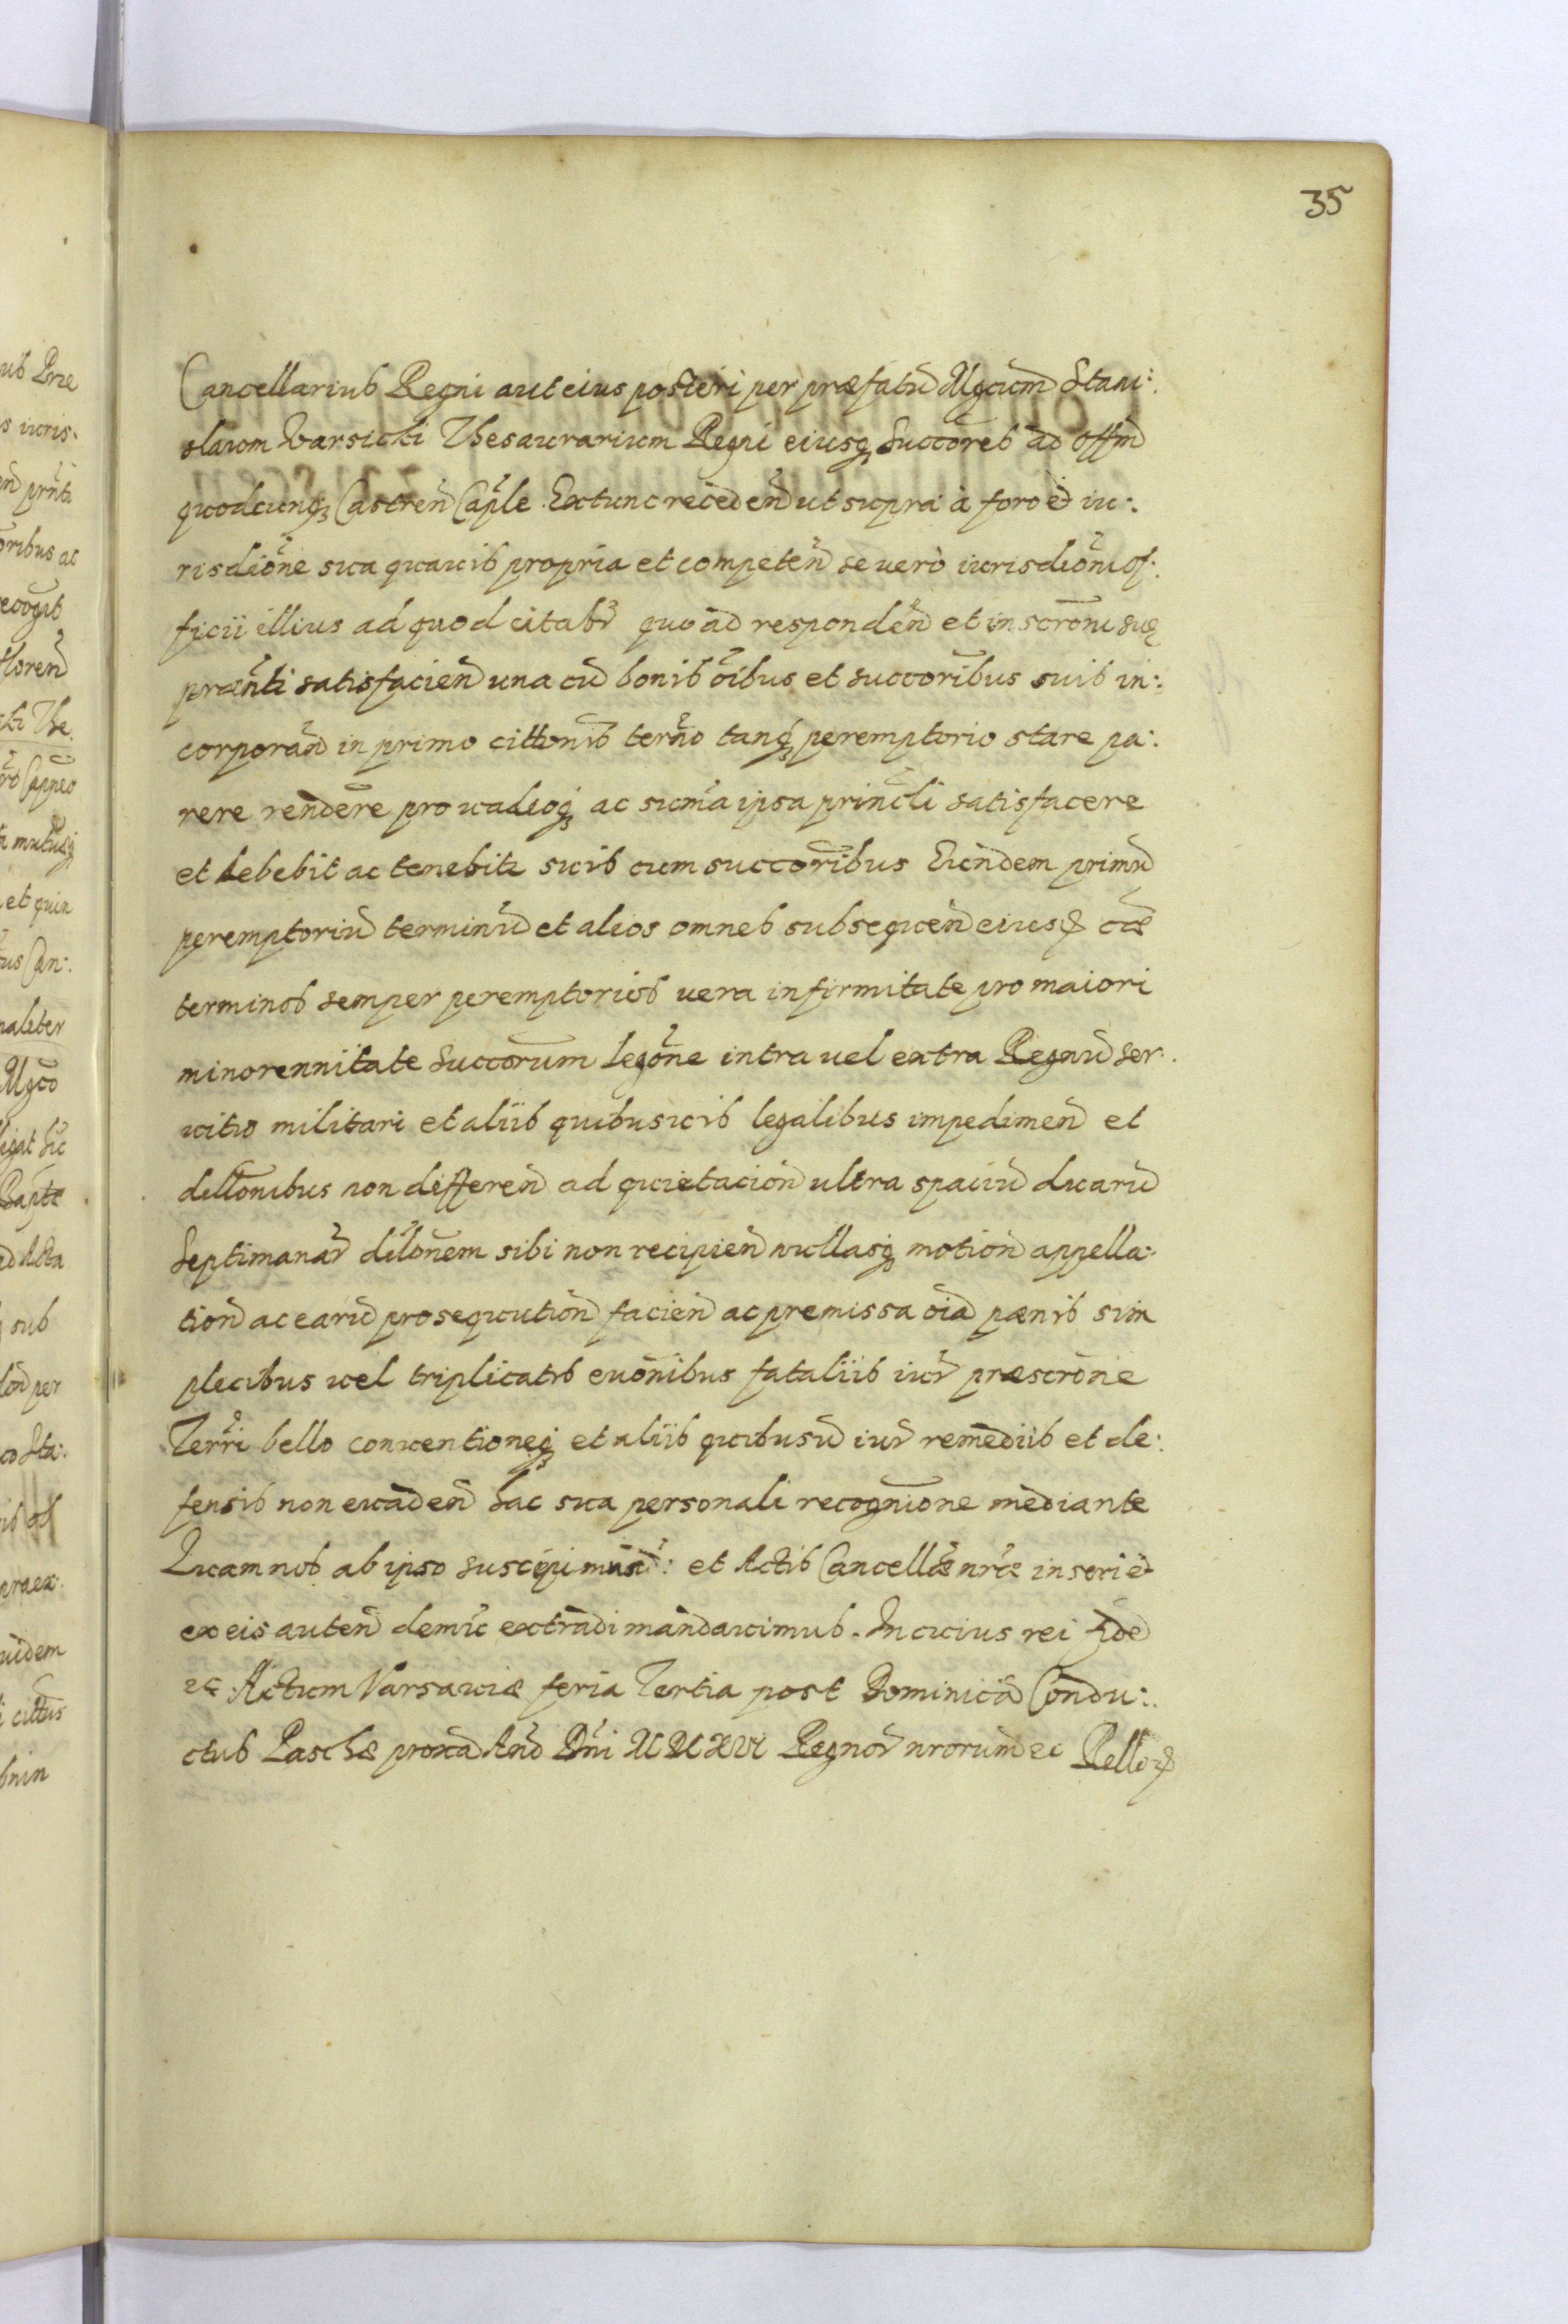 35
Cancellarius Regni aut eius posteri per præfatū Mgcūm Stani:
slaum Varsicki Thesaurarium Regni eiusq; Succōres ad Offm̄
quodcunq; Castren̄ Cap̄le. Extunc receden̄ ut supra à foro et iu:
risdiōne sua quauis propria et competen̄ se uerò iurisdiōni of:
ficii illius ad quod citabr̄ quo ad responden̄ et inscrōni suę
præn̄ti satisfacien̄ una cū bonis ōibus et succōribus suis in:
corporan̄ in primo cittōnis tern̄o tanq; peremptorio stare pa:
rere rendēre pro uadioq; ac sum̄a ipsa princ̄li satisfacere
et debebit ac tenebitr suis cum succōribus Eundem primū
peremptoriū terminū et alios omnes subsequen̄ eiusd̄ cǣ
terminos semper peremptorios uera infirmitate pro maiori
minorennitate Succōrum legōne intra uel extra Regnū Ser:
uitio militari et aliis quibusuis legalibus impedimen̄ et
dillōnibus non differen̄ ad quietacion̄ ultra spaciū duarū
Septimanar̄ dilōnem sibi non recipien̄ nullasq; motion̄ appella:
tion̄ ac earū prosequution̄ facien̄ ac premissa ōia pænis sim
plicibus uel triplicatis euōnibus fataliis iur̄ præscrōne
Terr̄i bello conuentioneq; et aliis quibusū iur̄ remediis et de:
fensis non euaden̄ hac sua personali recogn̄ione mediante
Quam nos ab ipso suscepimus: et Actis Cancellǣ nr̄æ inseri et
ex eis auten̄ demū extradi mandauimus. In cuius rei fidē
etc. Actum Varsauiæ feria Tertia post Dominicā Condu:
ctus Paschæ proxā Anō Dn̄i MDXVI Regnor̄ nrorum etc Rello